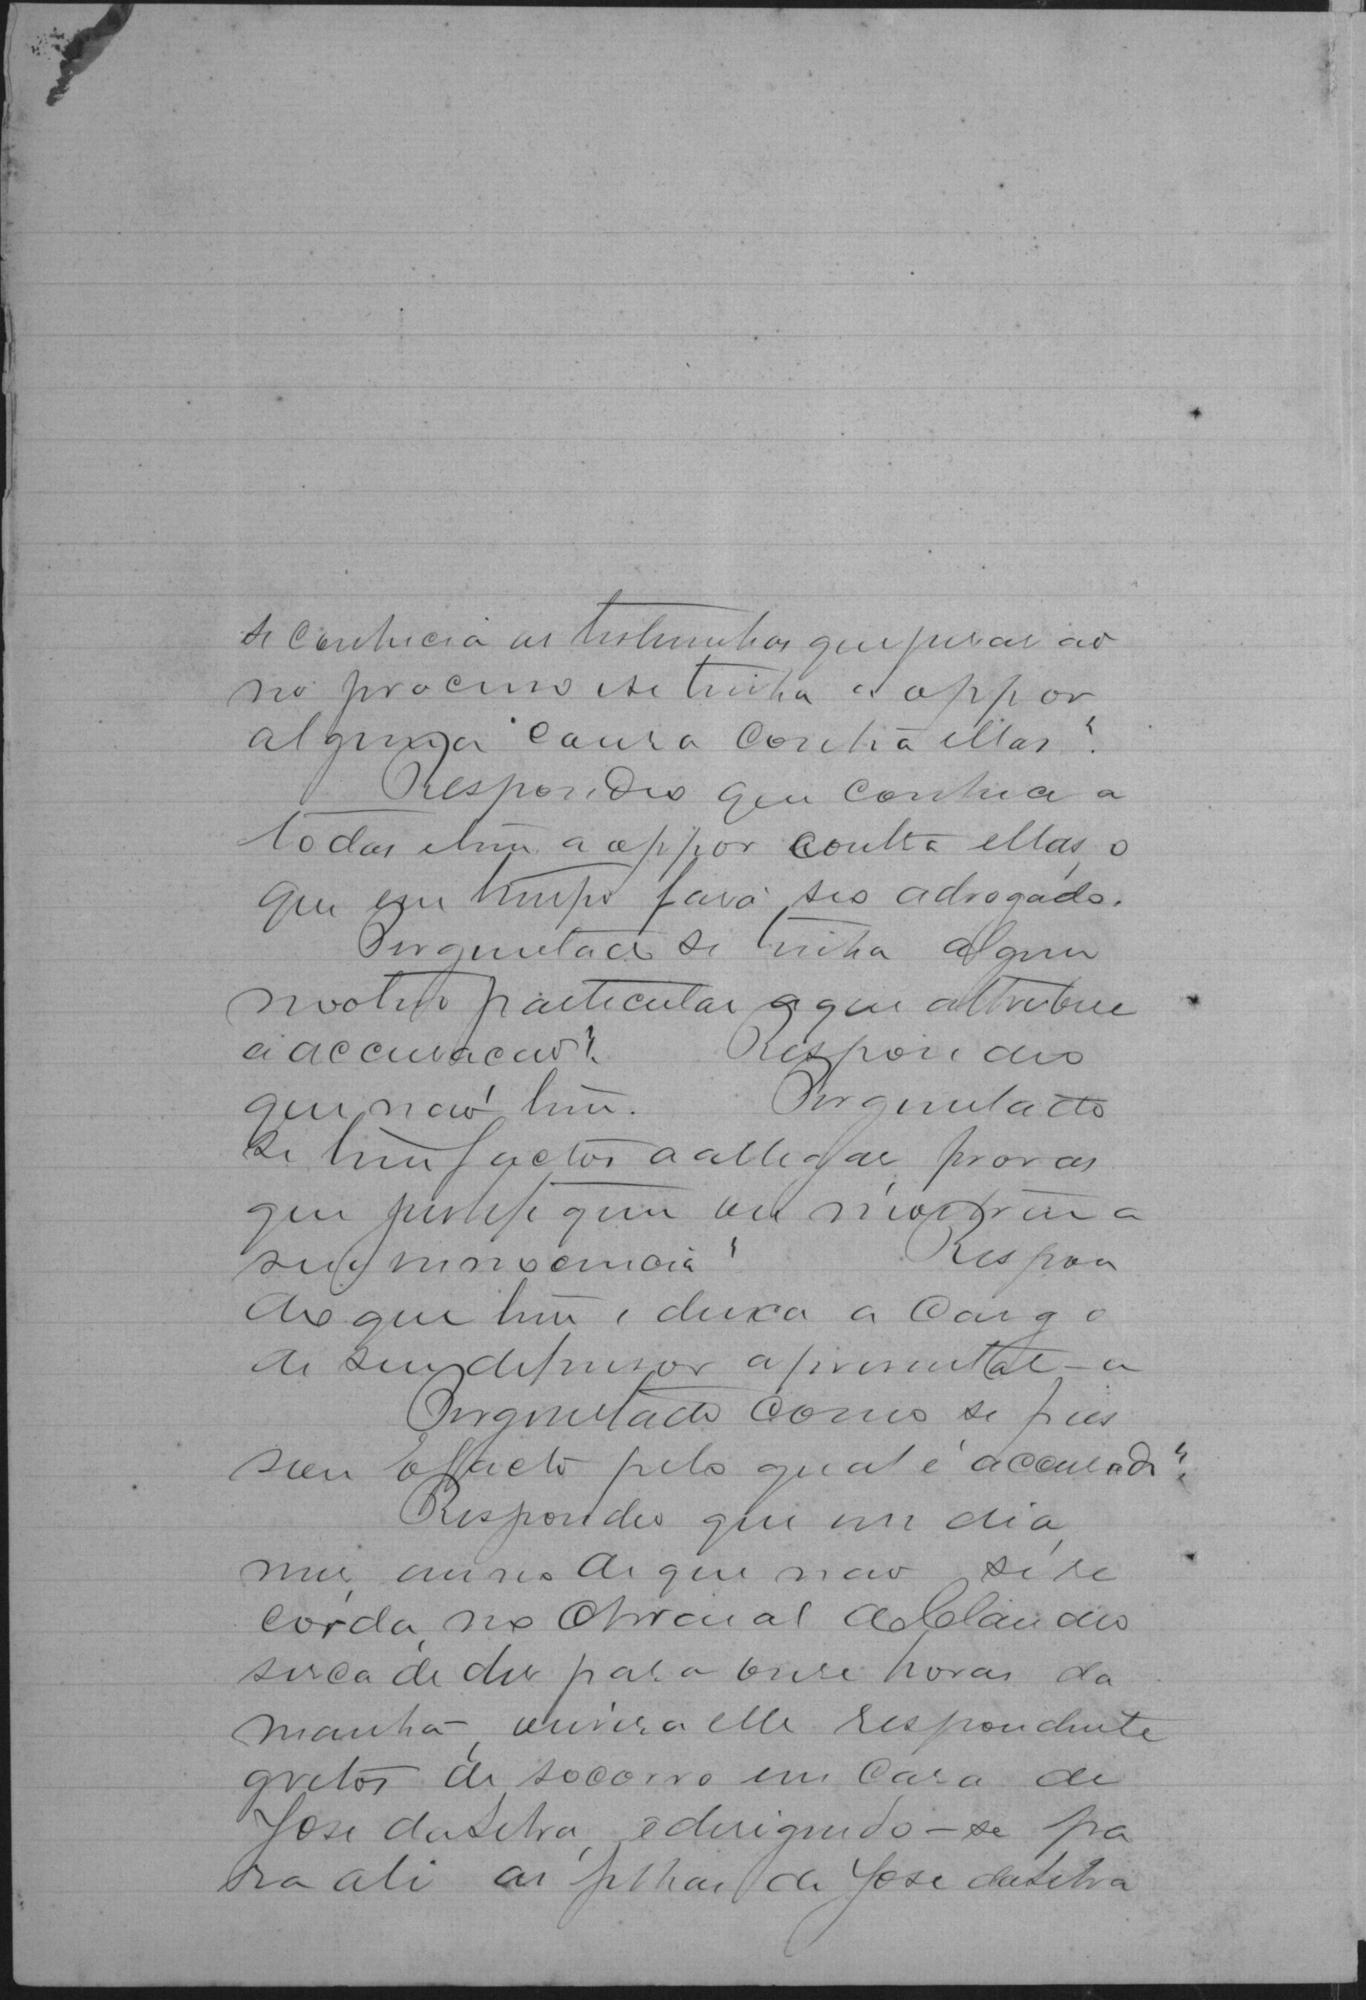 se conhecia as testemunhas que jurarão
no processo e se tinha a oppor
alguma causa contra ellas?
Respondeo que conhece a
todas e tem a oppor contra ellas, o
que em tempo fará seo advogado.
Perguntado se tinha algum
motivo particular a que attribue
a accusação? Respondeo
que não tem. Perguntado
se tem factos a allegar, provas
que justifiquem ou mostrem a
sua innocencia? Respon
deo que tem e deixa a cargo
de seu defensor apresental-a
Perguntado como se pas
sou o facto pelo qual é accusado?
Respondeo que um dia,
mez, anno de que não se re
corda, no de Claudio
serca de dez para onze horas da
manhã, ouvira elle respondente
gritos de socorro em casa de
Jose da Silva, e dirigindo-se pa
ra ali as filhas de Jose da Silva